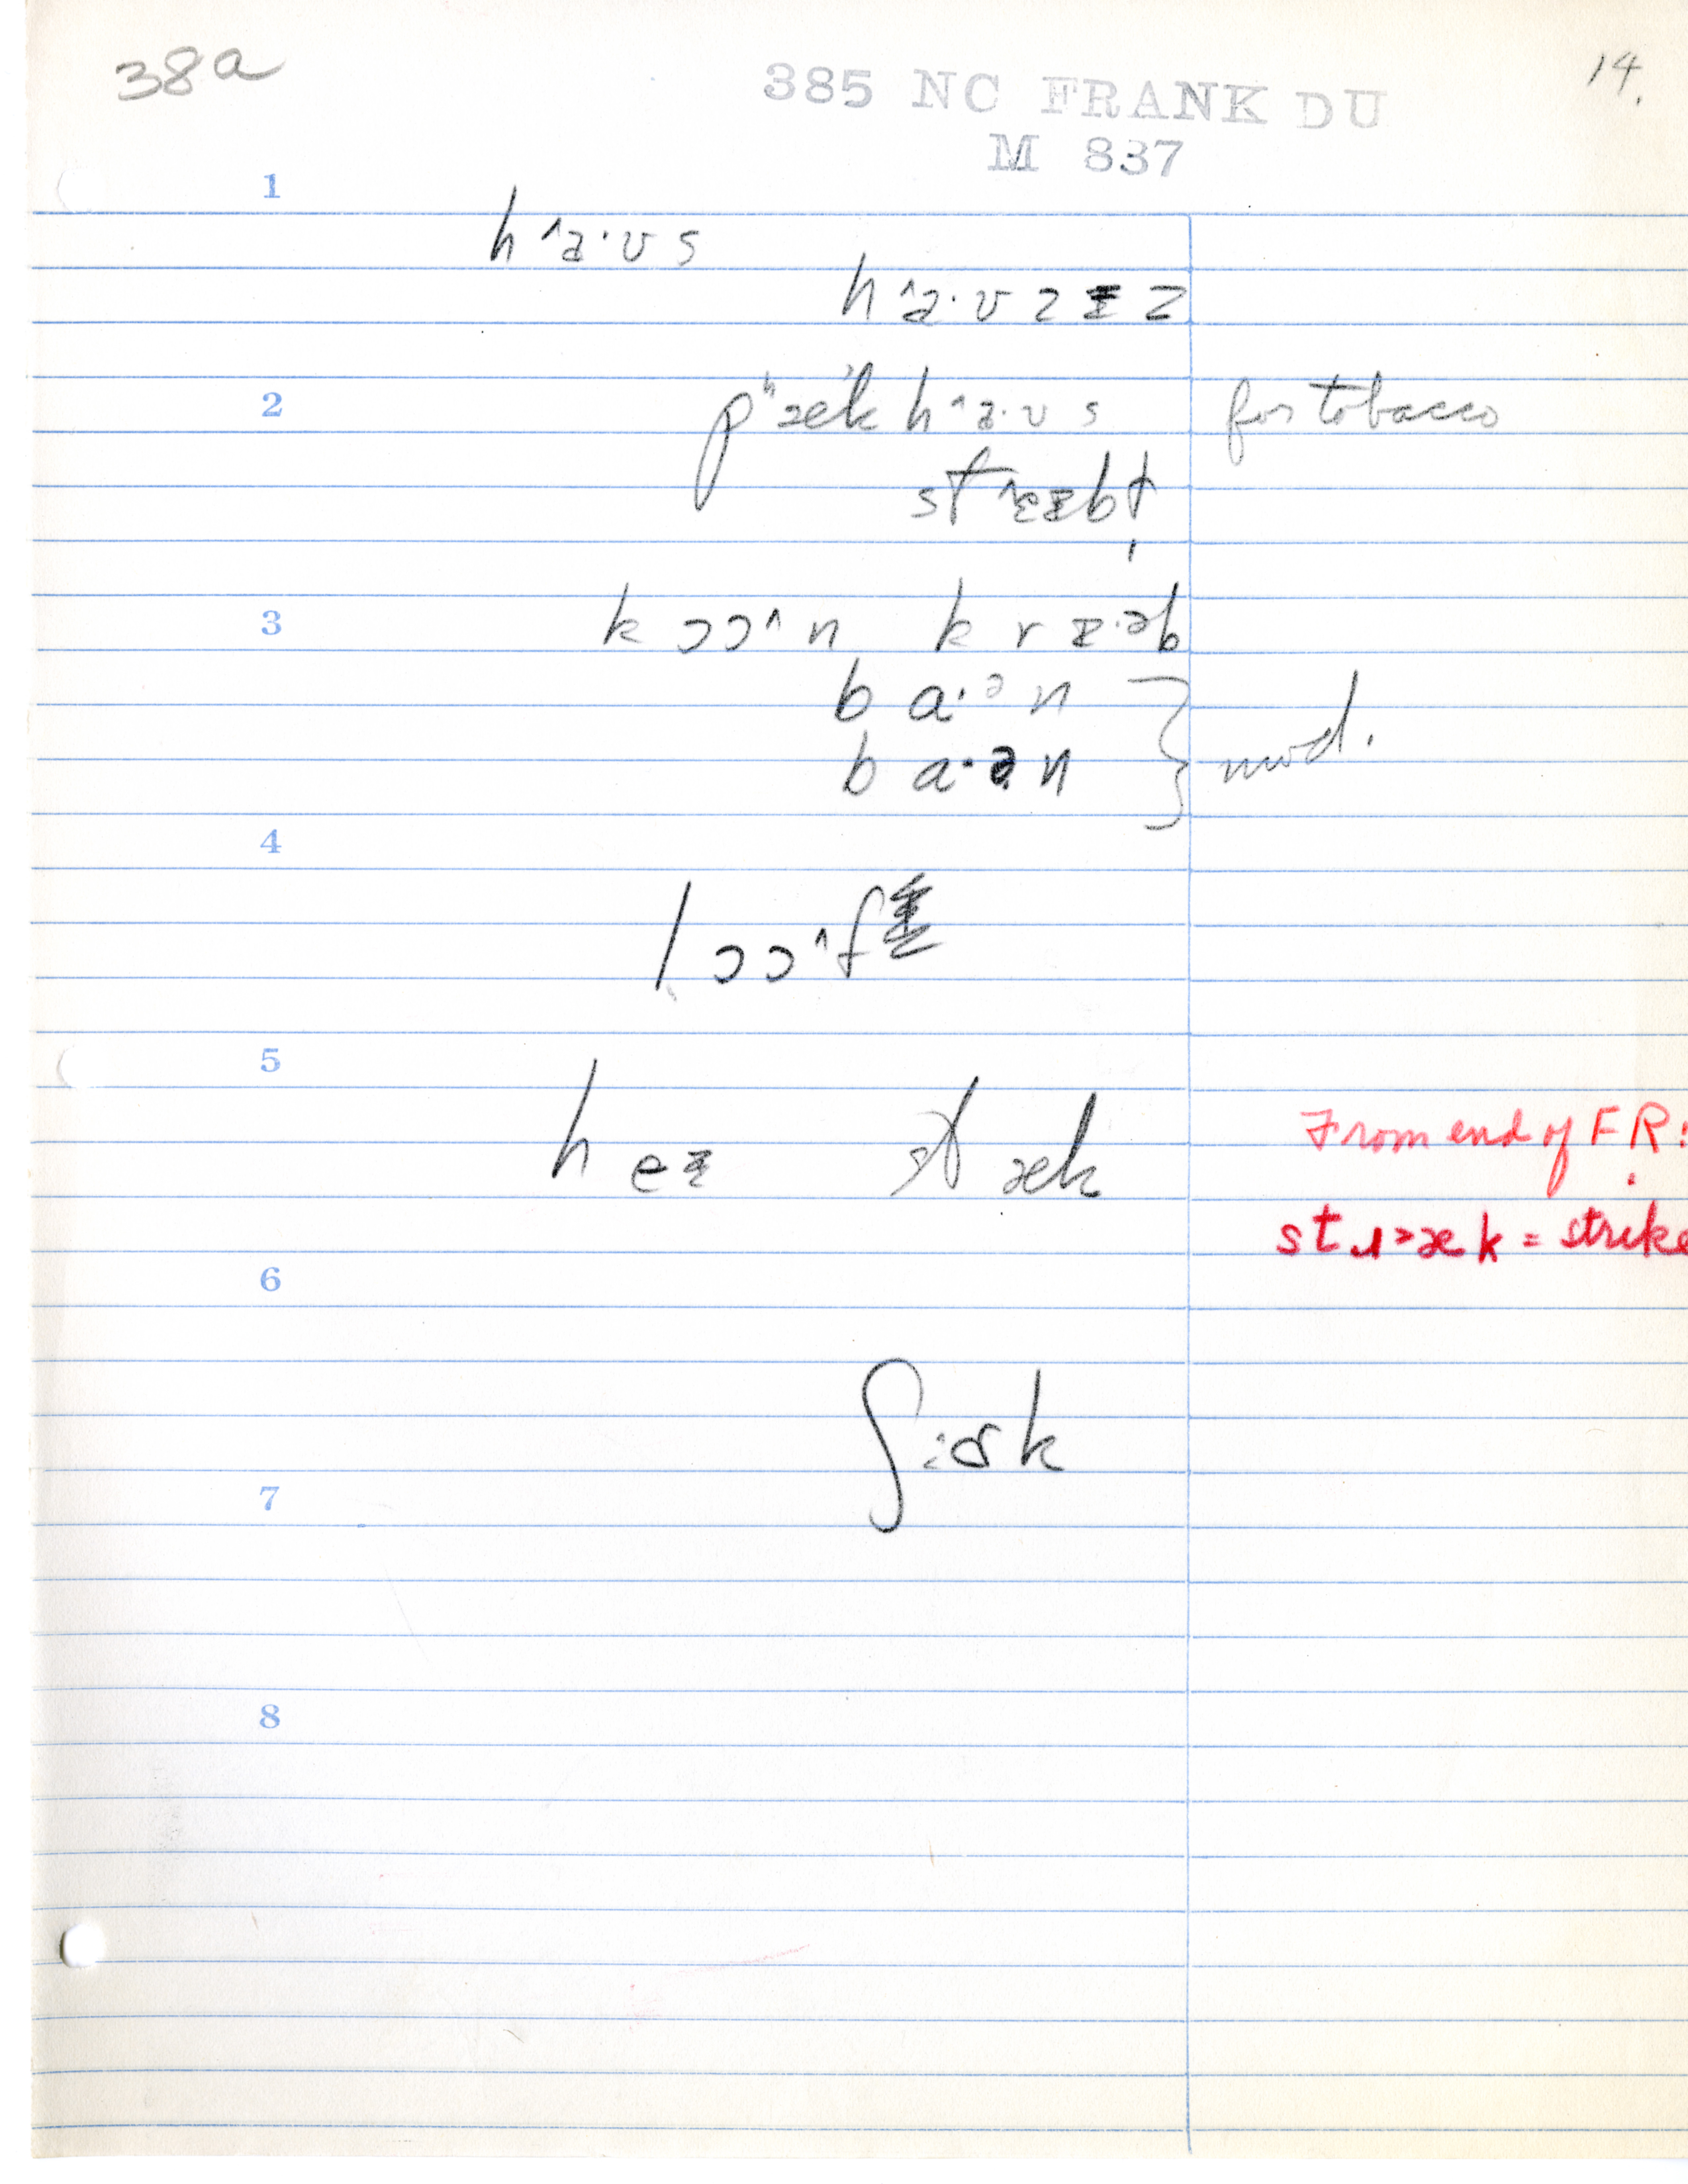 38a
14.
385 NC FRANK DU
M 837
1
h ˄ɜ·ʊ s
h ˄ɜ·ʊ z ɪ z
2
pʰæk h ˄ɜ·ʊ s for tobacco
3
k ɔɔ˄ n k r ɪ·əb
b a·ə n
b a·ə n
mod.
4
l ɔɔ˄f
5
h eɪ st æk
From end of FR:
st ɹ>æ k = strike
6
7
8